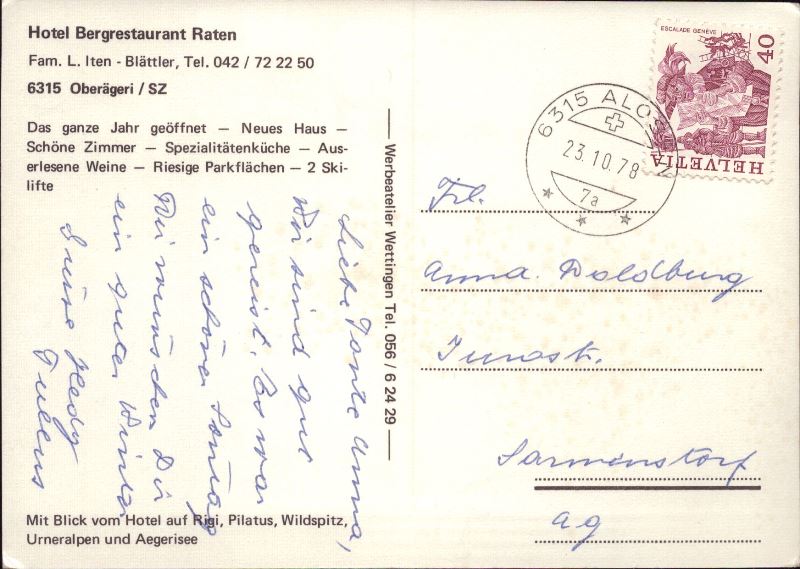 Hotel Bergrestaurant Raten
Fam. L. Iten - Blättler, Tel. 042 / 72 22 50
6315 Oberägeri / SZ
Das ganze Jahr geöffnet — Neues Haus —
Schöne Zimmer — Spezialitätenküche — Aus-
erlesene Weine — Riesige Parkflächen — 2 Ski-
lifte
Liebe Tante Anna,
Wir sind gut
gereist. Es war
ein schöner Sontag
Wir wünschen Dir
ein guter Winter
Hedy
Mit Blick vom Hotel auf Rigi, Pilatus, Wildspitz,
Urneralpen und Aegerisee
Werbeatelier Wettingen Tel. 056 / 6 24 29
ESCALADE GENÈVE
40
HELVETIA
6315 ALOSEN
23.10.78
7a
Frl.
Anna Doldburg
Jurastr.
Sarmenstorf
ag